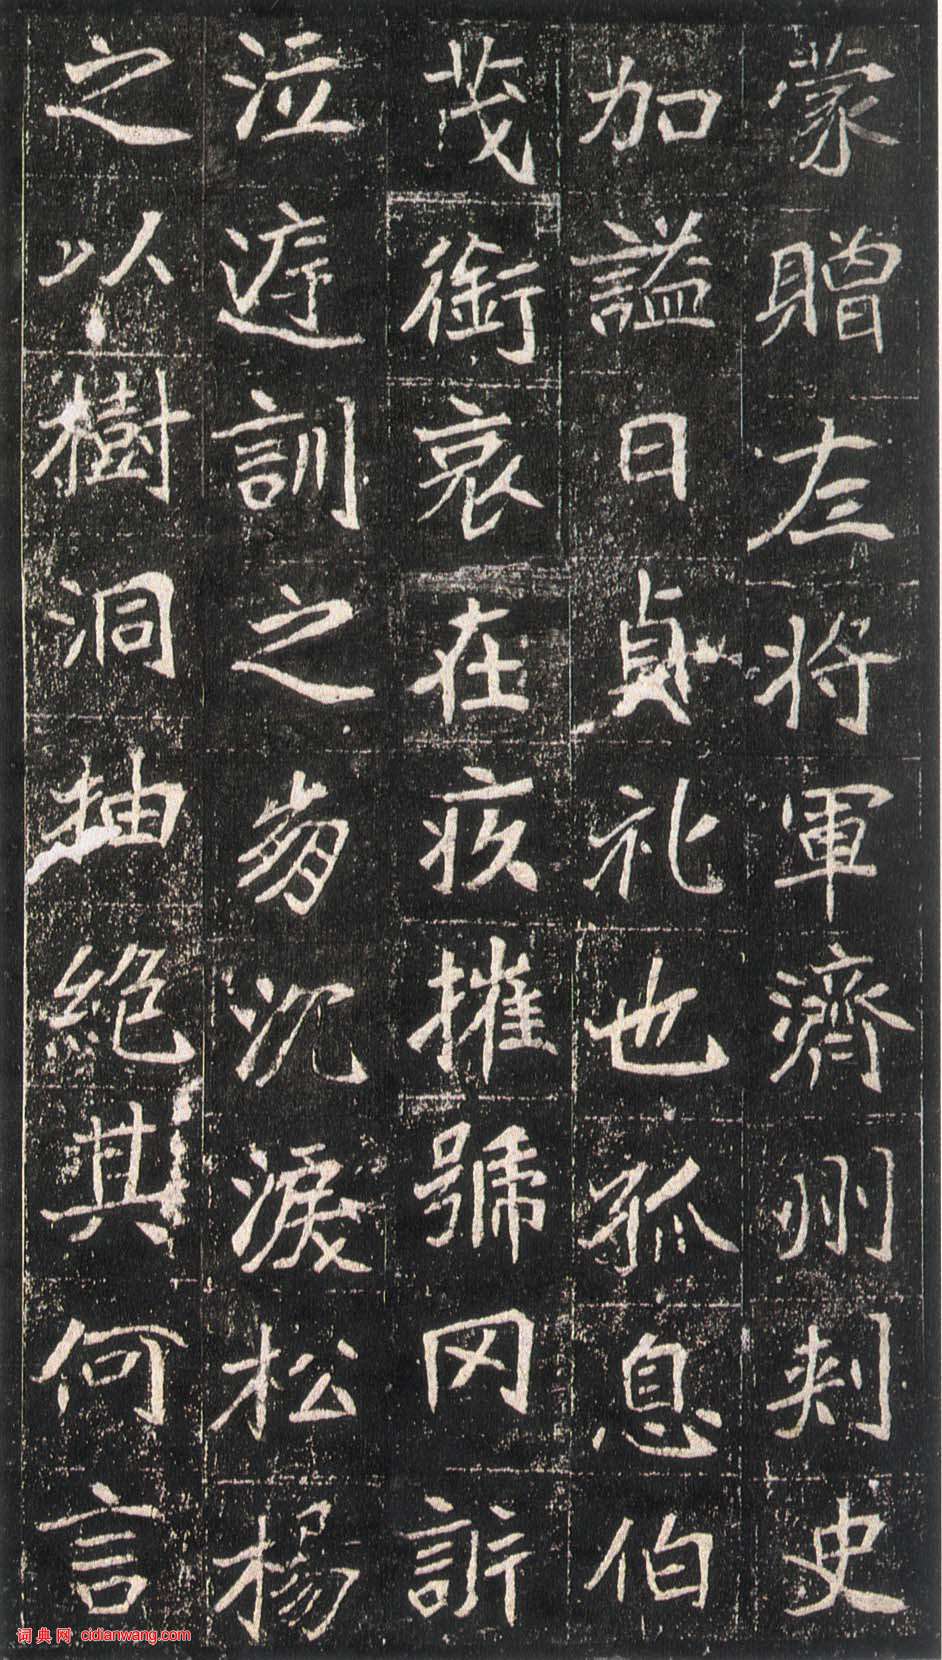 蒙贈左将軍濟州刾史
加謚曰貞礼也孤息伯
茂銜哀在疚摧號罔訴
泣遵訓之崩沉淚松楊
之以樹洞抽絕其何言
词典网 cidianwang.com